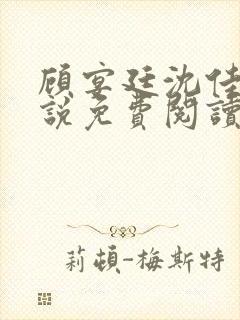 顾宴廷沈佳
說免費閱讀
莉頓-梅斯特